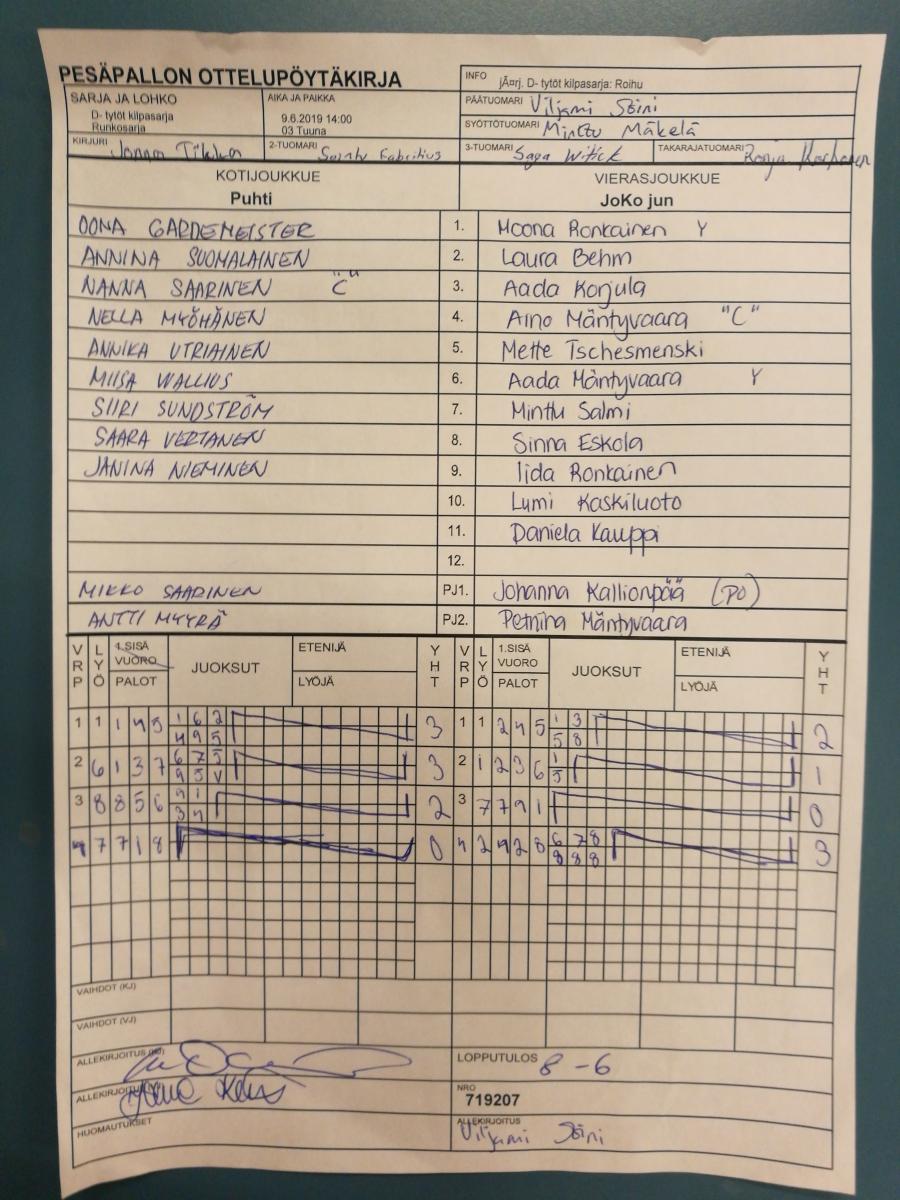 PESÄPALLON OTTELUPÖYTÄKIRJA
INFO jÃ¤rj. D- tytöt kilpasarja: Roihu
SARJA JA LOHKO
D- tytöt kilpasarja
Runkosarja
AIKA JA PAIKKA
9.6.2019 14:00
03 Tuuna
PÄÄTUOMARI Viljami Söini
SYÖTTÖTUOMARI Minttu Mäkelä
KIRJURI
2-TUOMARI Fabritius
3-TUOMARI Saga
TAKARAJATUOMARI Ronja
KOTIJOUKKUE
Puhti
VIERASJOUKKUE
JoKo jun
OONA GARDEMEISTER 1. Moona Ronkainen Y
ANNINA SUOMALAINEN 2. Laura Behm
NANNA SAARINEN "C" 3. Aada Korjula
NELLA MYÖHÄNEN 4. Aino Mäntyvaara "C"
ANNIKA UTRIAINEN 5. Mette Tschesmenski
MIISA WALLIUS 6. Aada Mäntyvaara Y
SIIRI SUNDSTRÖM 7. Minttu Salmi
SAARA VERTANEN 8. Sinna Eskola
JANINA NIEMINEN 9. Iida Ronkainen
10. Lumi Kaskiluoto
11. Daniela Kauppi
12.
MIKKO SAARINEN PJ1. Johanna Kallionpää (PO)
ANTTI MYYRÄ PJ2. Petriina Mäntyvaara
VRP LYÖ 1.SISÄ VUORO PALOT JUOKSUT ETENIJÄ LYÖJÄ YHT VRP LYÖ 1.SISÄ VUORO PALOT JUOKSUT ETENIJÄ LYÖJÄ YHT
1 1 1 4 5 1 6 2 3 1 1 2 4 5 1 3 2
4 9 5 5 8
2 6 1 3 7 6 7 5 3 2 1 2 3 6 1 1
9 5 V 5
3 8 8 5 6 9 1 2 3 7 7 9 1 0
3 4
4 7 7 1 8 0 4 2 4 2 8 6 7 8 3
8 8 8
VAIHDOT (KJ)
VAIHDOT (VJ)
ALLEKIRJOITUS (KJ)
LOPPUTULOS 8 - 6
ALLEKIRJOITUS
NRO
719207
HUOMAUTUKSET
ALLEKIRJOITUS
Viljami Söini